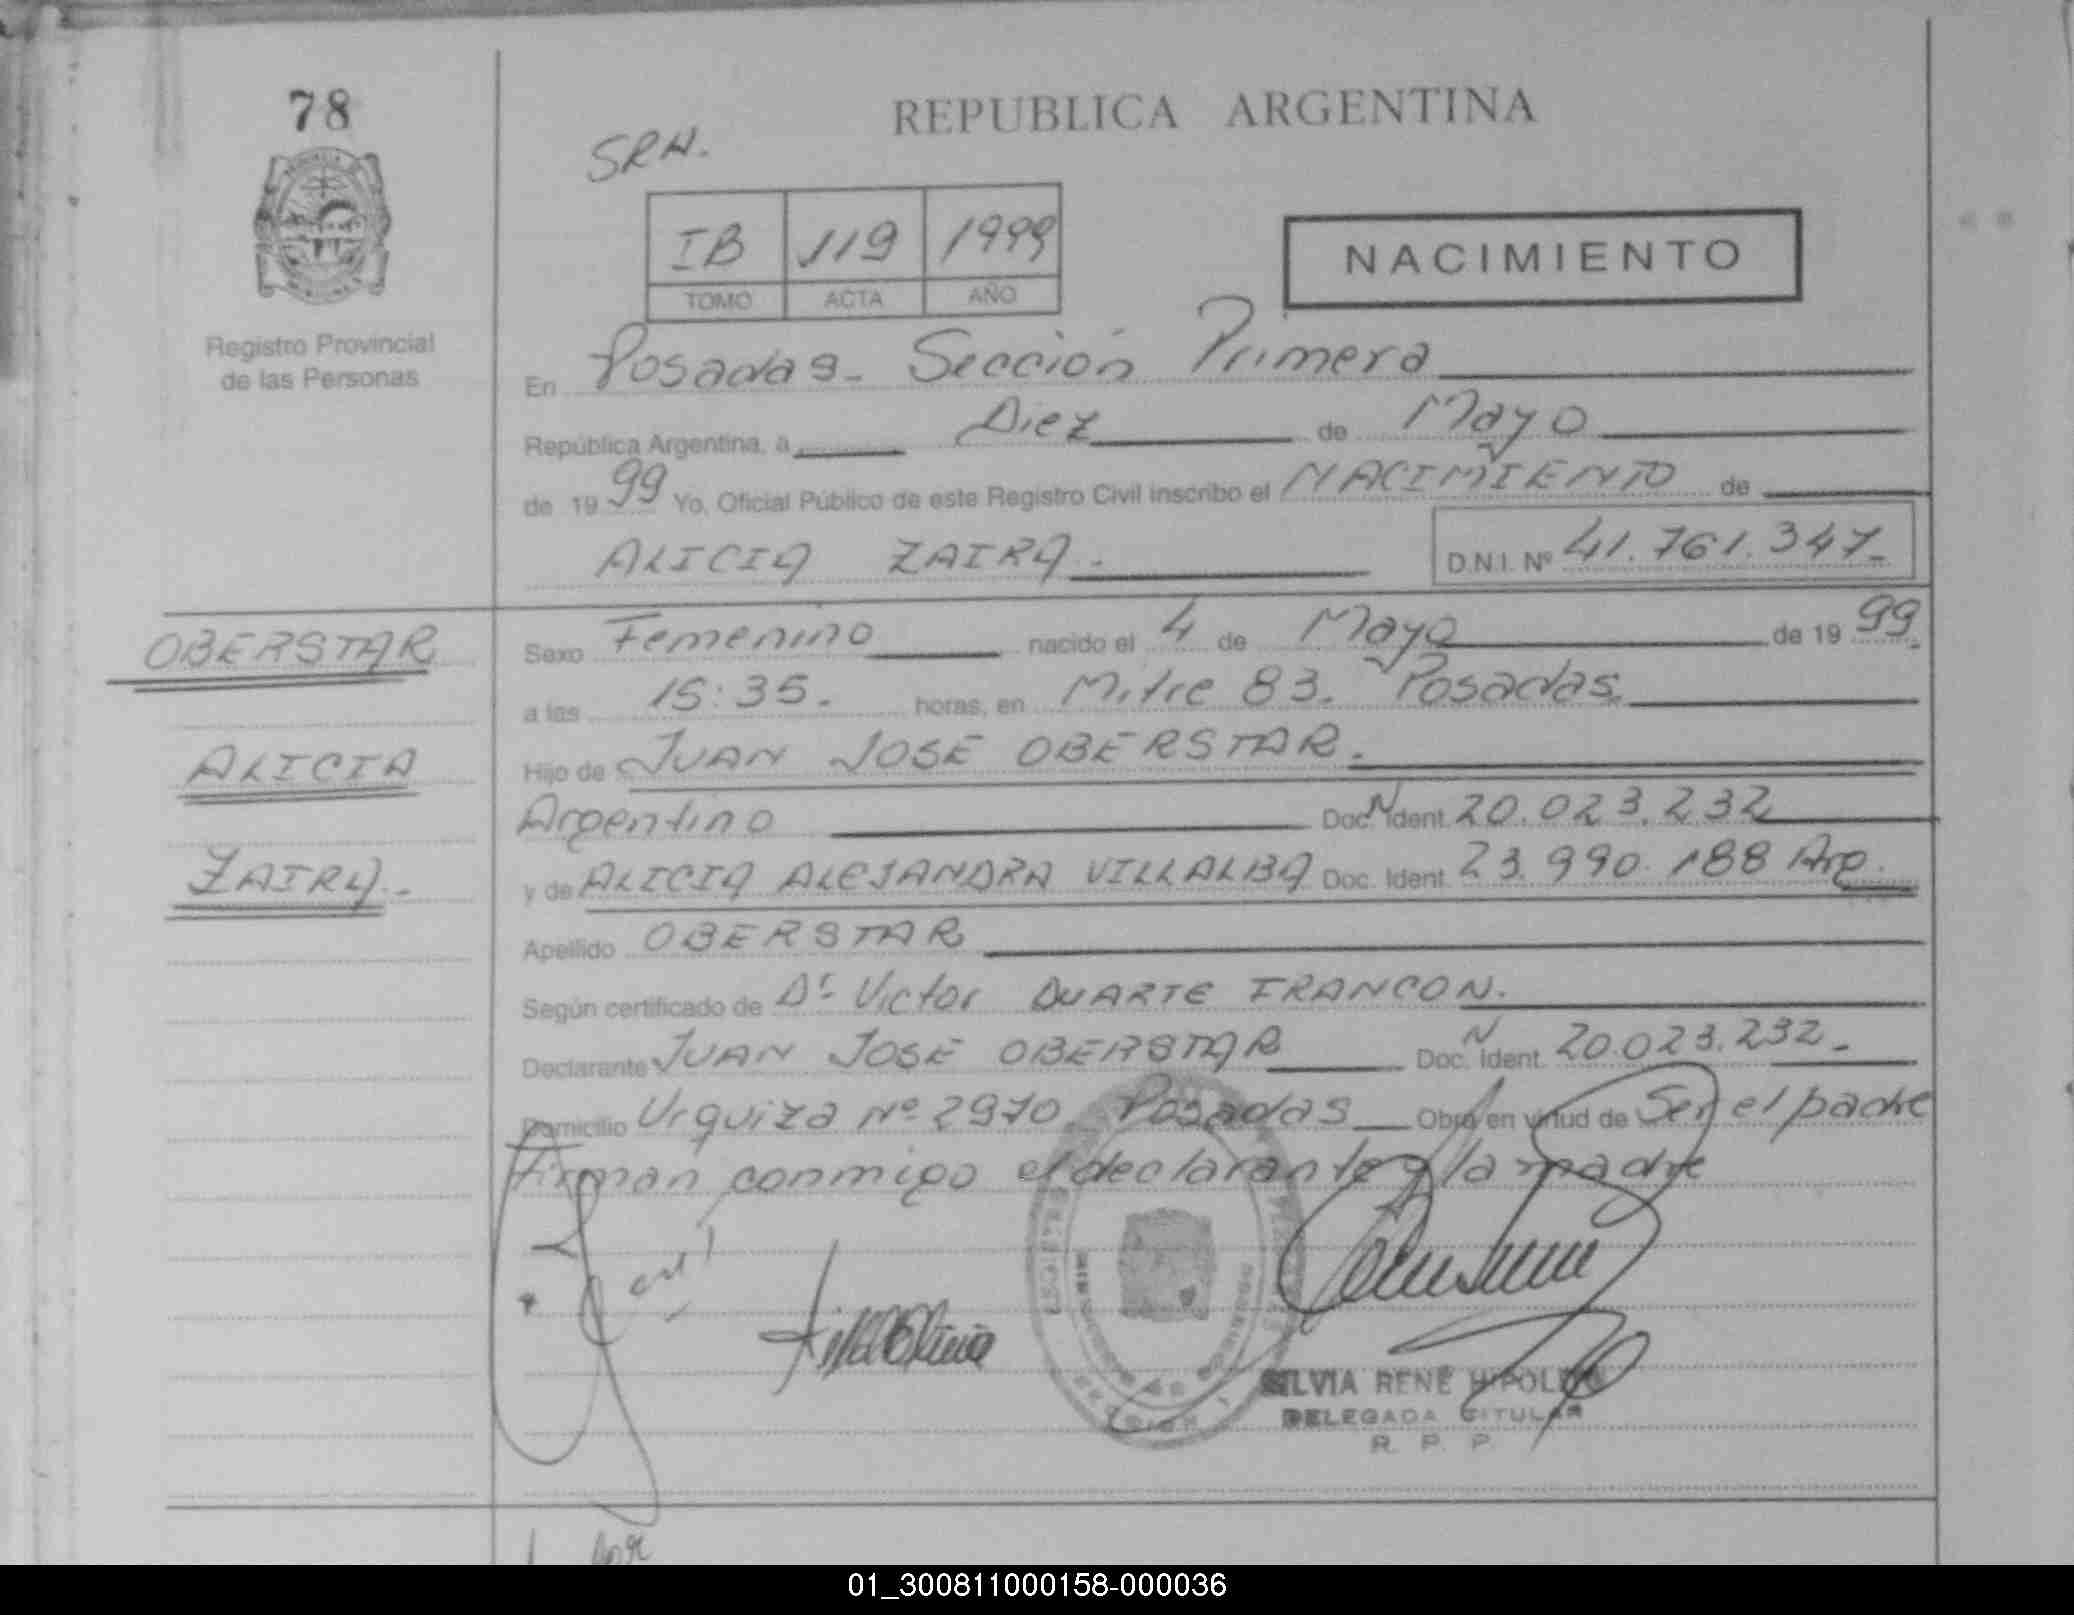 78
REPUBLICA ARGENTINA
SRH.
IB 119 1999
TOMO ACTA AÑO
NACIMIENTO
Registro Provincial
de las Personas
En Posadas - Sección Primera
República Argentina, a Diez de Mayo
de 1999 Yo, Oficial Público de este Registro Civil inscribo el NACIMIENTO de
ALICIA ZAIRA.
D.N.I. Nº 41.761.347-
OBERSTAR
ALICIA
ZAIRA.-
Sexo Femenino nacido el 4 de Mayo de 1999.
a las 15:35. horas, en Mitre 83. Posadas.
Hijo de JUAN JOSE OBERSTAR.
Argentino Doc. N Ident. 20.023.232
y de ALICIA ALEJANDRA VILLALBA Doc. Ident. 23.990.188 Arg.
Apellido OBERSTAR
Según certificado de Dr Victor DUARTE FRANCON.
Declarante JUAN JOSE OBERSTAR Doc. N Ident. 20.023.232.-
Domicilio Urquiza Nº 2970. Posadas Obra en virtud de Ser el padre
Firman conmigo el declarante y la madre
SILVIA RENE HIPOLITO
DELEGADA TITULAR
R. P. P.
01_300811000158-000036